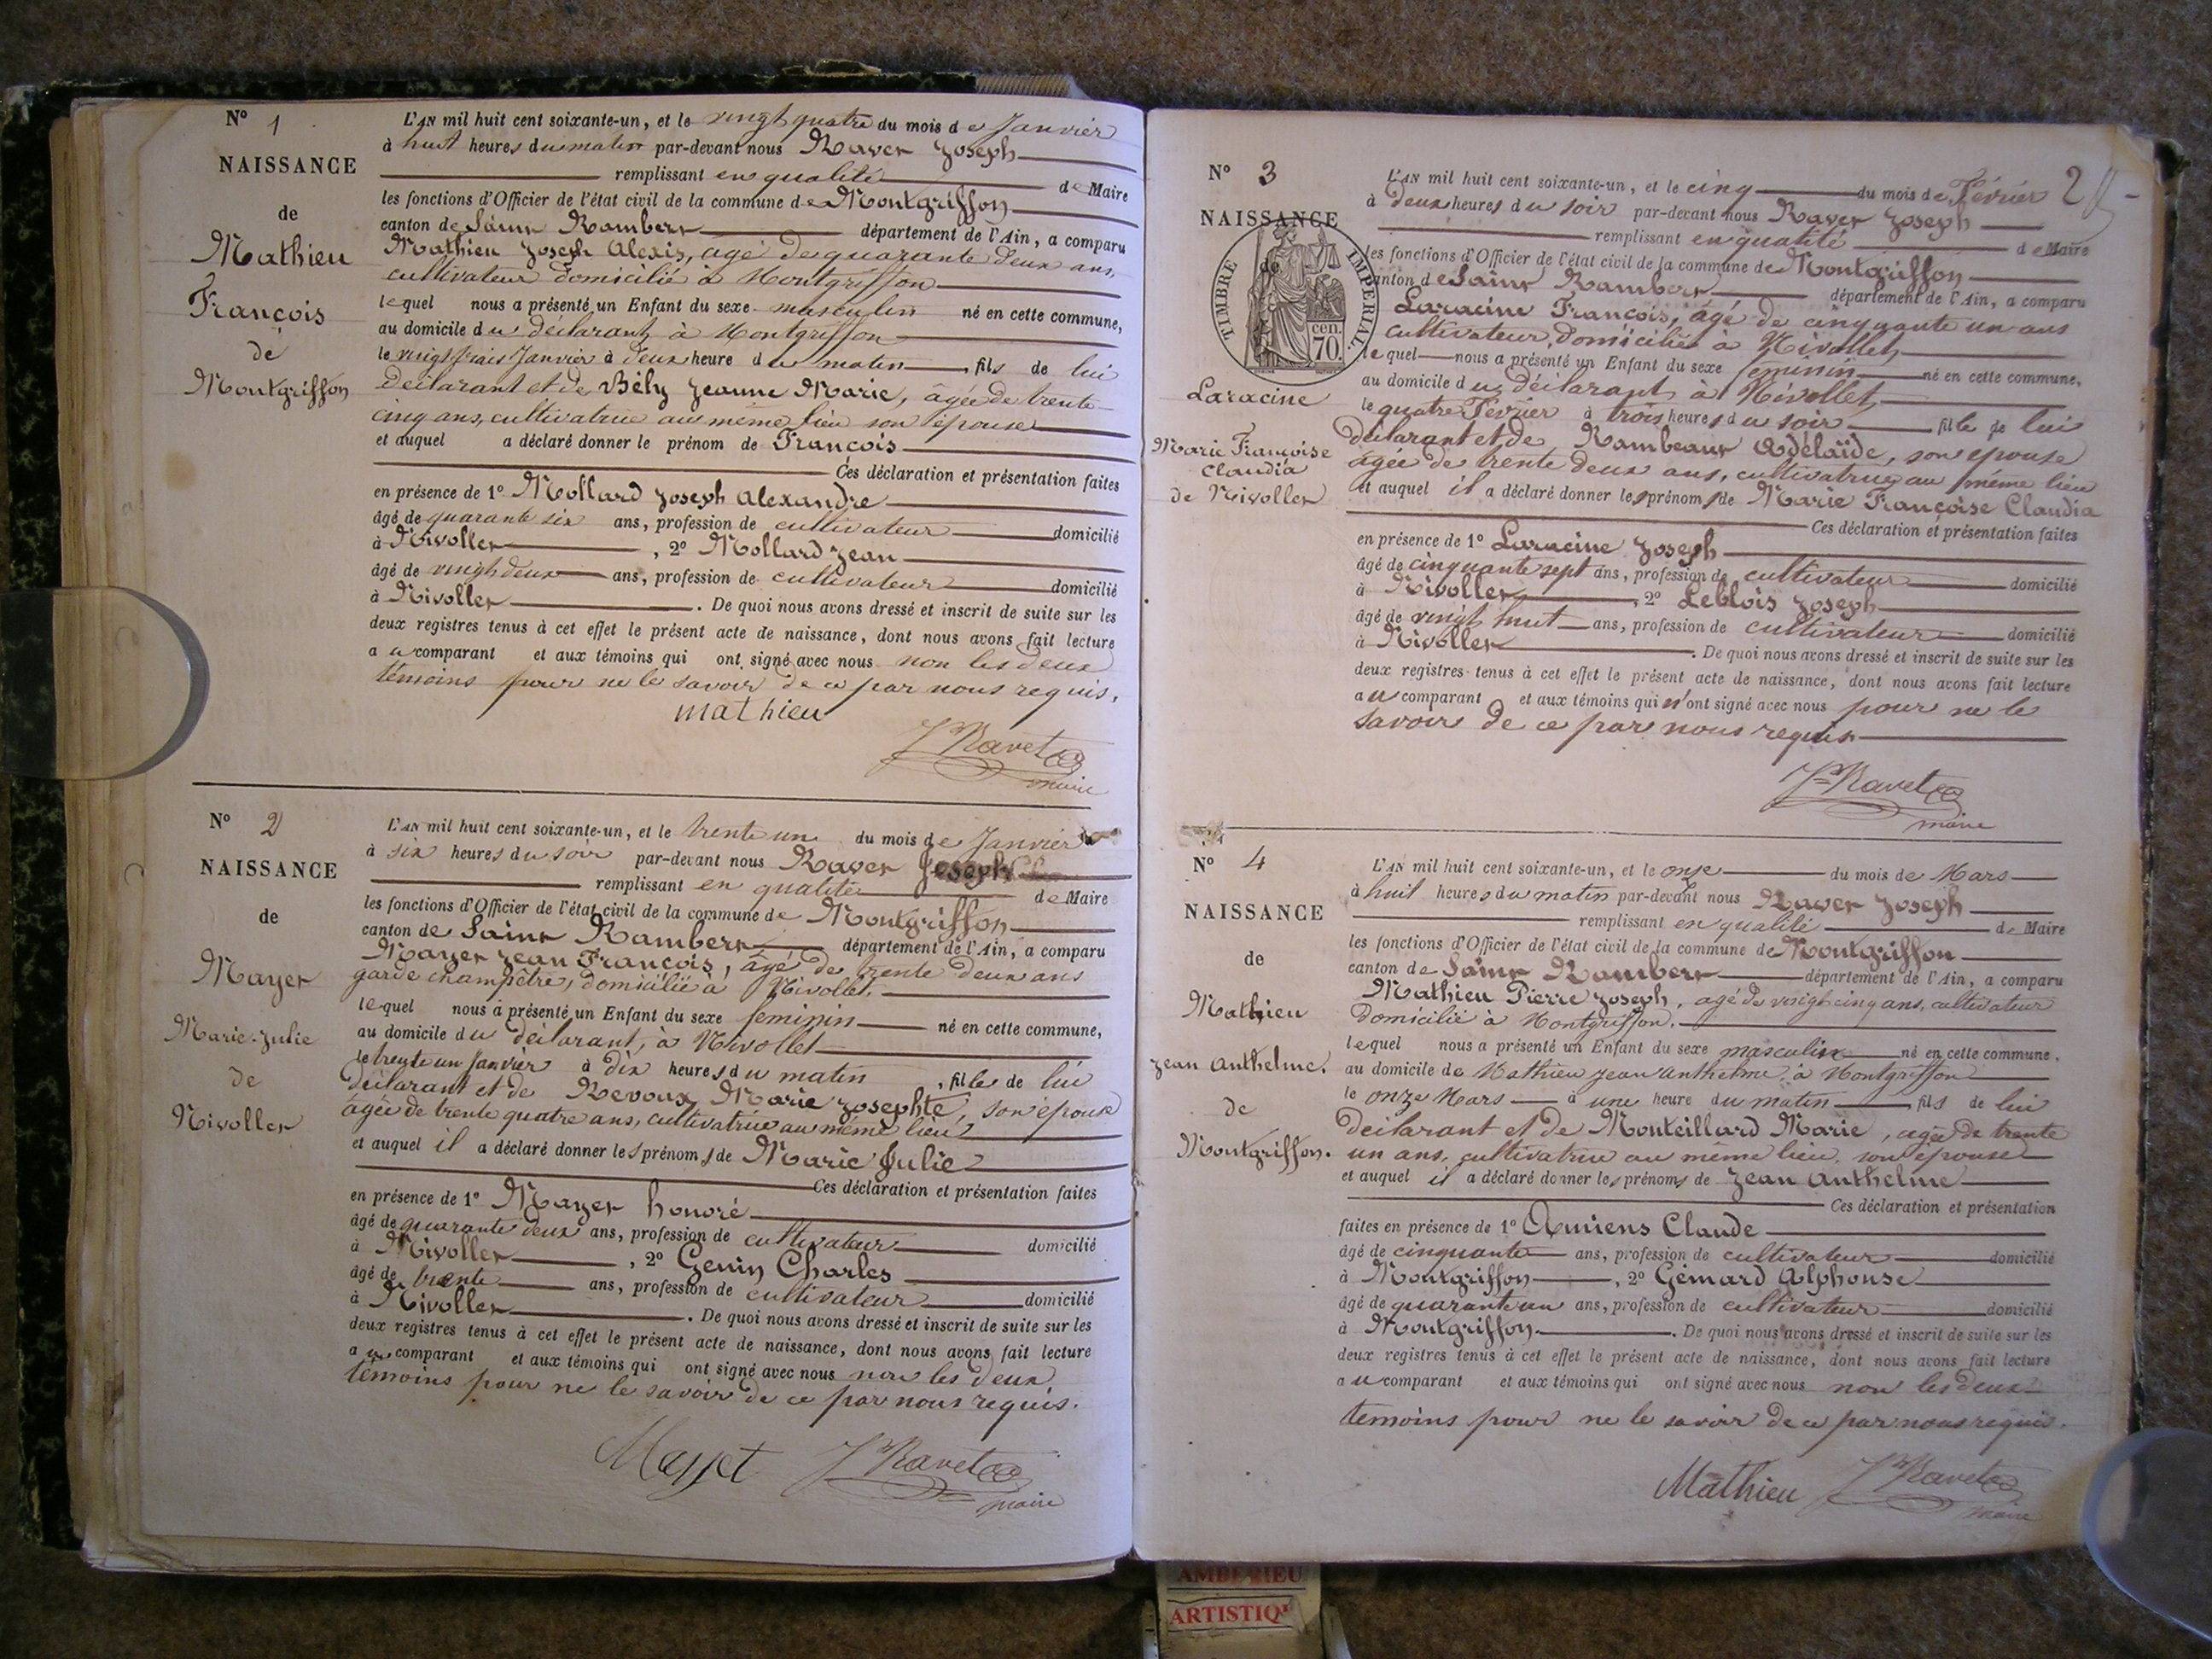 N° 1
NAISSANCE
de
Mathieu
François
de
Montgriffon
L'AN mil huit cent soixante-un, et le vingt quatre du mois de Janvier
à huit heures du matin par-devant nous Ravet Joseph
remplissant en qualité de Maire
les fonctions d'Officier de l'état civil de la commune de Montgriffon
canton de Saint Rambert département de l'Ain, a comparu
Mathieu Joseph Alexis, agé de quarante deux ans,
cultivateur domicilié à Montgriffon
lequel nous a présenté un Enfant du sexe masculin né en cette commune,
au domicile du déclarant, à Montgriffon
le vingt trois Janvier à deux heure du matin, fils de lui
déclarant et de Bély Jeanne Marie, âgée de trente
cinq ans, cultivatrice au même lieu son épouse
et auquel a déclaré donner le prénom de François
Ces déclaration et présentation faites
en présence de 1° Mollard Joseph Alexandre
âgé de quarante six ans, profession de cultivateur domicilié
à Nivollet, 2° Mollard Jean
âgé de vingt deux ans, profession de cultivateur domicilié
à Nivollet. De quoi nous avons dressé et inscrit de suite sur les
deux registres tenus à cet effet le présent acte de naissance, dont nous avons fait lecture
au comparant et aux témoins qui ont signé avec nous non les deux
témoins pour ne le savoir de ce par nous requis.
Mathieu
J Ravet
maire
N° 2
NAISSANCE
de
Mayet
Marie-Julie
de
Nivollet
L'AN mil huit cent soixante-un, et le trente un du mois de Janvier
à six heures du soir par-devant nous Ravet Joseph
remplissant en qualité de Maire
les fonctions d'Officier de l'état civil de la commune de Montgriffon
canton de Saint Rambert département de l'Ain, a comparu
Mayet Jean François, âgé de trente deux ans
garde champêtre, domicilié à Nivollet.
lequel nous a présenté un Enfant du sexe feminin né en cette commune,
au domicile du déclarant, à Nivollet
le trente un Janvier à dix heures du matin, fille de lui
déclarant et de Revoux Marie Josephte, son épouse
âgée de trente quatre ans, cultivatrice au même lieu
et auquel il a déclaré donner les prénoms de Marie Julie
Ces déclaration et présentation faites
en présence de 1° Mayet honoré
âgé de quarante deux ans, profession de cultivateur domicilié
à Nivollet, 2° Genin Charles
âgé de trente ans, profession de cultivateur domicilié
à Nivollet. De quoi nous avons dressé et inscrit de suite sur les
deux registres tenus à cet effet le présent acte de naissance, dont nous avons fait lecture
au comparant et aux témoins qui ont signé avec nous non les deux
témoins pour ne le savoir de ce par nous requis.
Mayet J Ravet
maire
2
N° 3
NAISSANCE
de
TIMBRE IMPERIAL
cen.
70.
Laracine
Marie Françoise
Claudia
de Nivollet
L'AN mil huit cent soixante-un, et le cinq du mois de Février
à deux heures du soir par-devant nous Ravet Joseph
remplissant en qualité de Maire
les fonctions d'Officier de l'état civil de la commune de Montgriffon
canton de Saint Rambert département de l'Ain, a comparu
Laracine François, âgé de cinquante un ans
cultivateur, domicilié à Nivollet
lequel nous a présenté un Enfant du sexe feminin né en cette commune,
au domicile du déclarant, à Nivollet,
le quatre Février à trois heures du soir fille de lui
déclarant et de Rambeaux Adélaïde, son épouse
âgée de trente deux ans, cultivatrice au même lieu
et auquel il a déclaré donner les prénoms de Marie Françoise Claudia
Ces déclaration et présentation faites
en présence de 1° Laracine Joseph
âgé de cinquante sept ans, profession de cultivateur domicilié
à Nivollet, 2° Leblois Joseph
âgé de vingt huit ans, profession de cultivateur domicilié
à Nivollet. De quoi nous avons dressé et inscrit de suite sur les
deux registres tenus à cet effet le présent acte de naissance, dont nous avons fait lecture
au comparant et aux témoins qui n'ont signé avec nous pour ne le
savoir de ce par nous requis
J Ravet
maire
N° 4
NAISSANCE
de
Mathieu
Jean Anthelme.
de
Montgriffon.
L'AN mil huit cent soixante-un, et le onze du mois de Mars
à huit heures du matin par-devant nous Ravet Joseph
remplissant en qualité de Maire
les fonctions d'Officier de l'état civil de la commune de Montgriffon
canton de Saint Rambert département de l'Ain, a comparu
Mathieu Pierre Joseph, agé de vingt cinq ans, cultivateur
domicilié à Montgriffon.
lequel nous a présenté un Enfant du sexe masculin né en cette commune,
au domicile de Mathieu Jean Anthelme à Montgriffon
le onze Mars à une heure du matin, fils de lui
déclarant et de Monteillard Marie, agée de trente
un ans, cultivatrice au même lieu, son épouse
et auquel il a déclaré donner les prénoms de Jean Anthelme
Ces déclaration et présentation
faites en présence de 1° Amiens Claude
âgé de cinquante ans, profession de cultivateur domicilié
à Montgriffon, 2° Gémard Alphonse
âgé de quarante un ans, profession de cultivateur domicilié
à Montgriffon. De quoi nous avons dressé et inscrit de suite sur les
deux registres tenus à cet effet le présent acte de naissance, dont nous avons fait lecture
au comparant et aux témoins qui ont signé avec nous non les deux
témoins pour ne le savoir de ce par nous requis.
Mathieu J Ravet
maire
AMBERIEU
ARTISTIQ